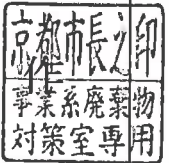 京都市長之印
作
事業系廃棄物
対策室専用